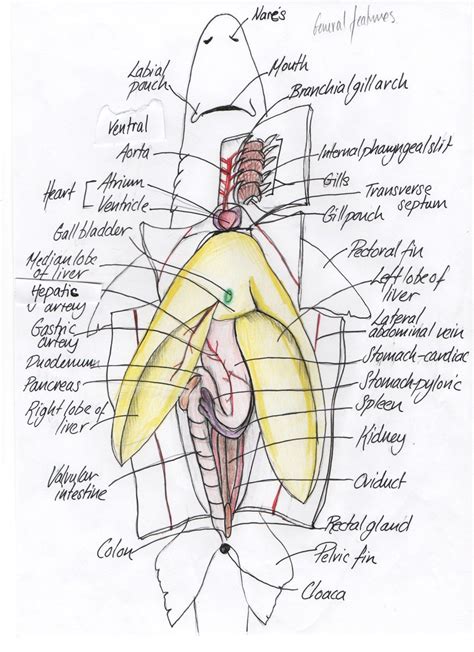 Nares
General features
Labial
pouch
Mouth
Branchial gill arch
Ventral
Aorta
Internal pharyngeal slit
Heart
Atrium
Ventricle
Gills
Transverse
septum
Gall bladder
Gill pouch
Median lobe
of liver
Pectoral fin
Hepatic
artery
Left lobe of
liver
Gastric
artery
Lateral
abdominal vein
Duodenum
Stomach-cardiac
Pancreas
Stomach-pyloric
Right lobe of
liver
Spleen
Kidney
Valvular
intestine
Oviduct
Rectal gland
Colon
Pelvic fin
Cloaca